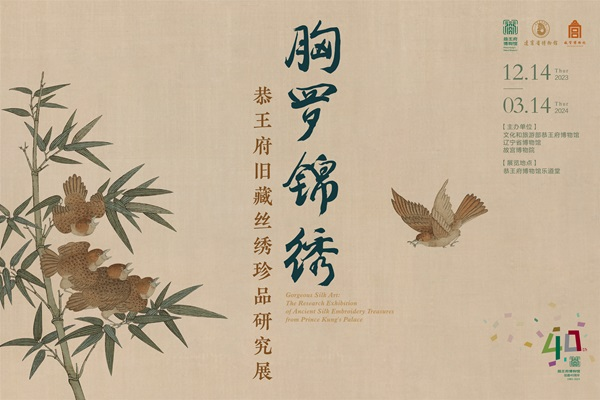 胸罗锦绣
恭王府旧藏丝绣珍品研究展
Gorgeous Silk Art:
The Research Exhibition
of Ancient Silk Embroidery Treasures
from Prince Kung's Palace
恭王府
博物馆
辽宁省博物馆
故宫博物院
12.14 Thur 2023
03.14 Thur 2024
【主办单位】
文化和旅游部恭王府博物馆
辽宁省博物馆
故宫博物院
【展览地点】
恭王府博物馆乐道堂
40
恭王府博物馆